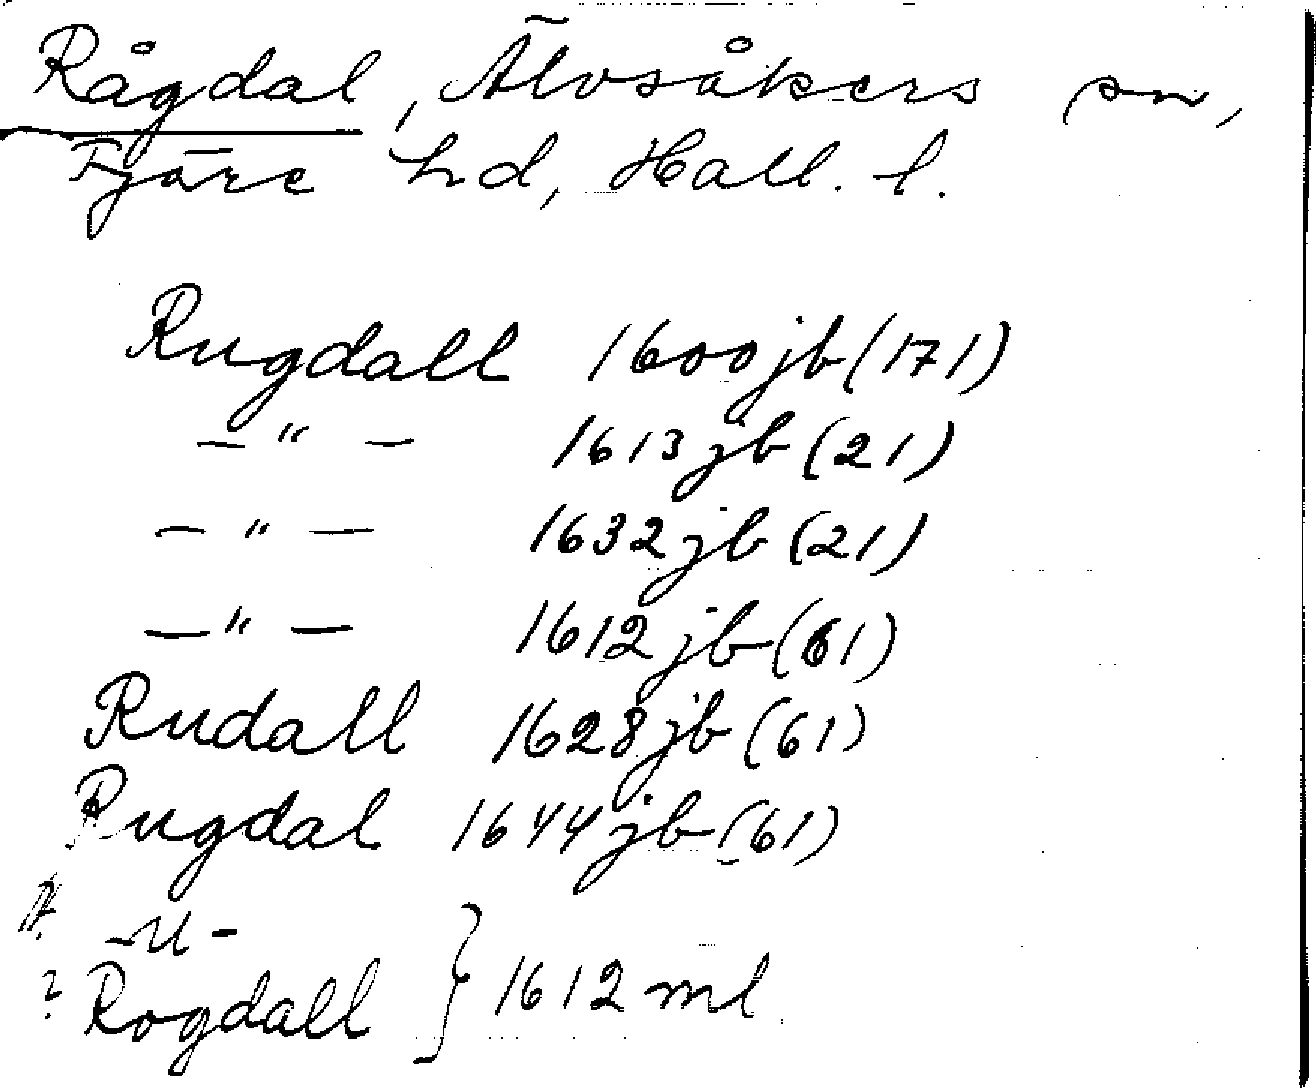 Rågdal, Älvsåkers sn,
Fjäre hd, Hall. l.
Rugdall 1600 jb (171)
— " — 1613 jb (21)
— " — 1632 jb (21)
— " — 1612 jb (61)
Rudall 1628 jb (61)
Rugdal 1644 jb (61)
-u-
? Rogdall } 1612 ml